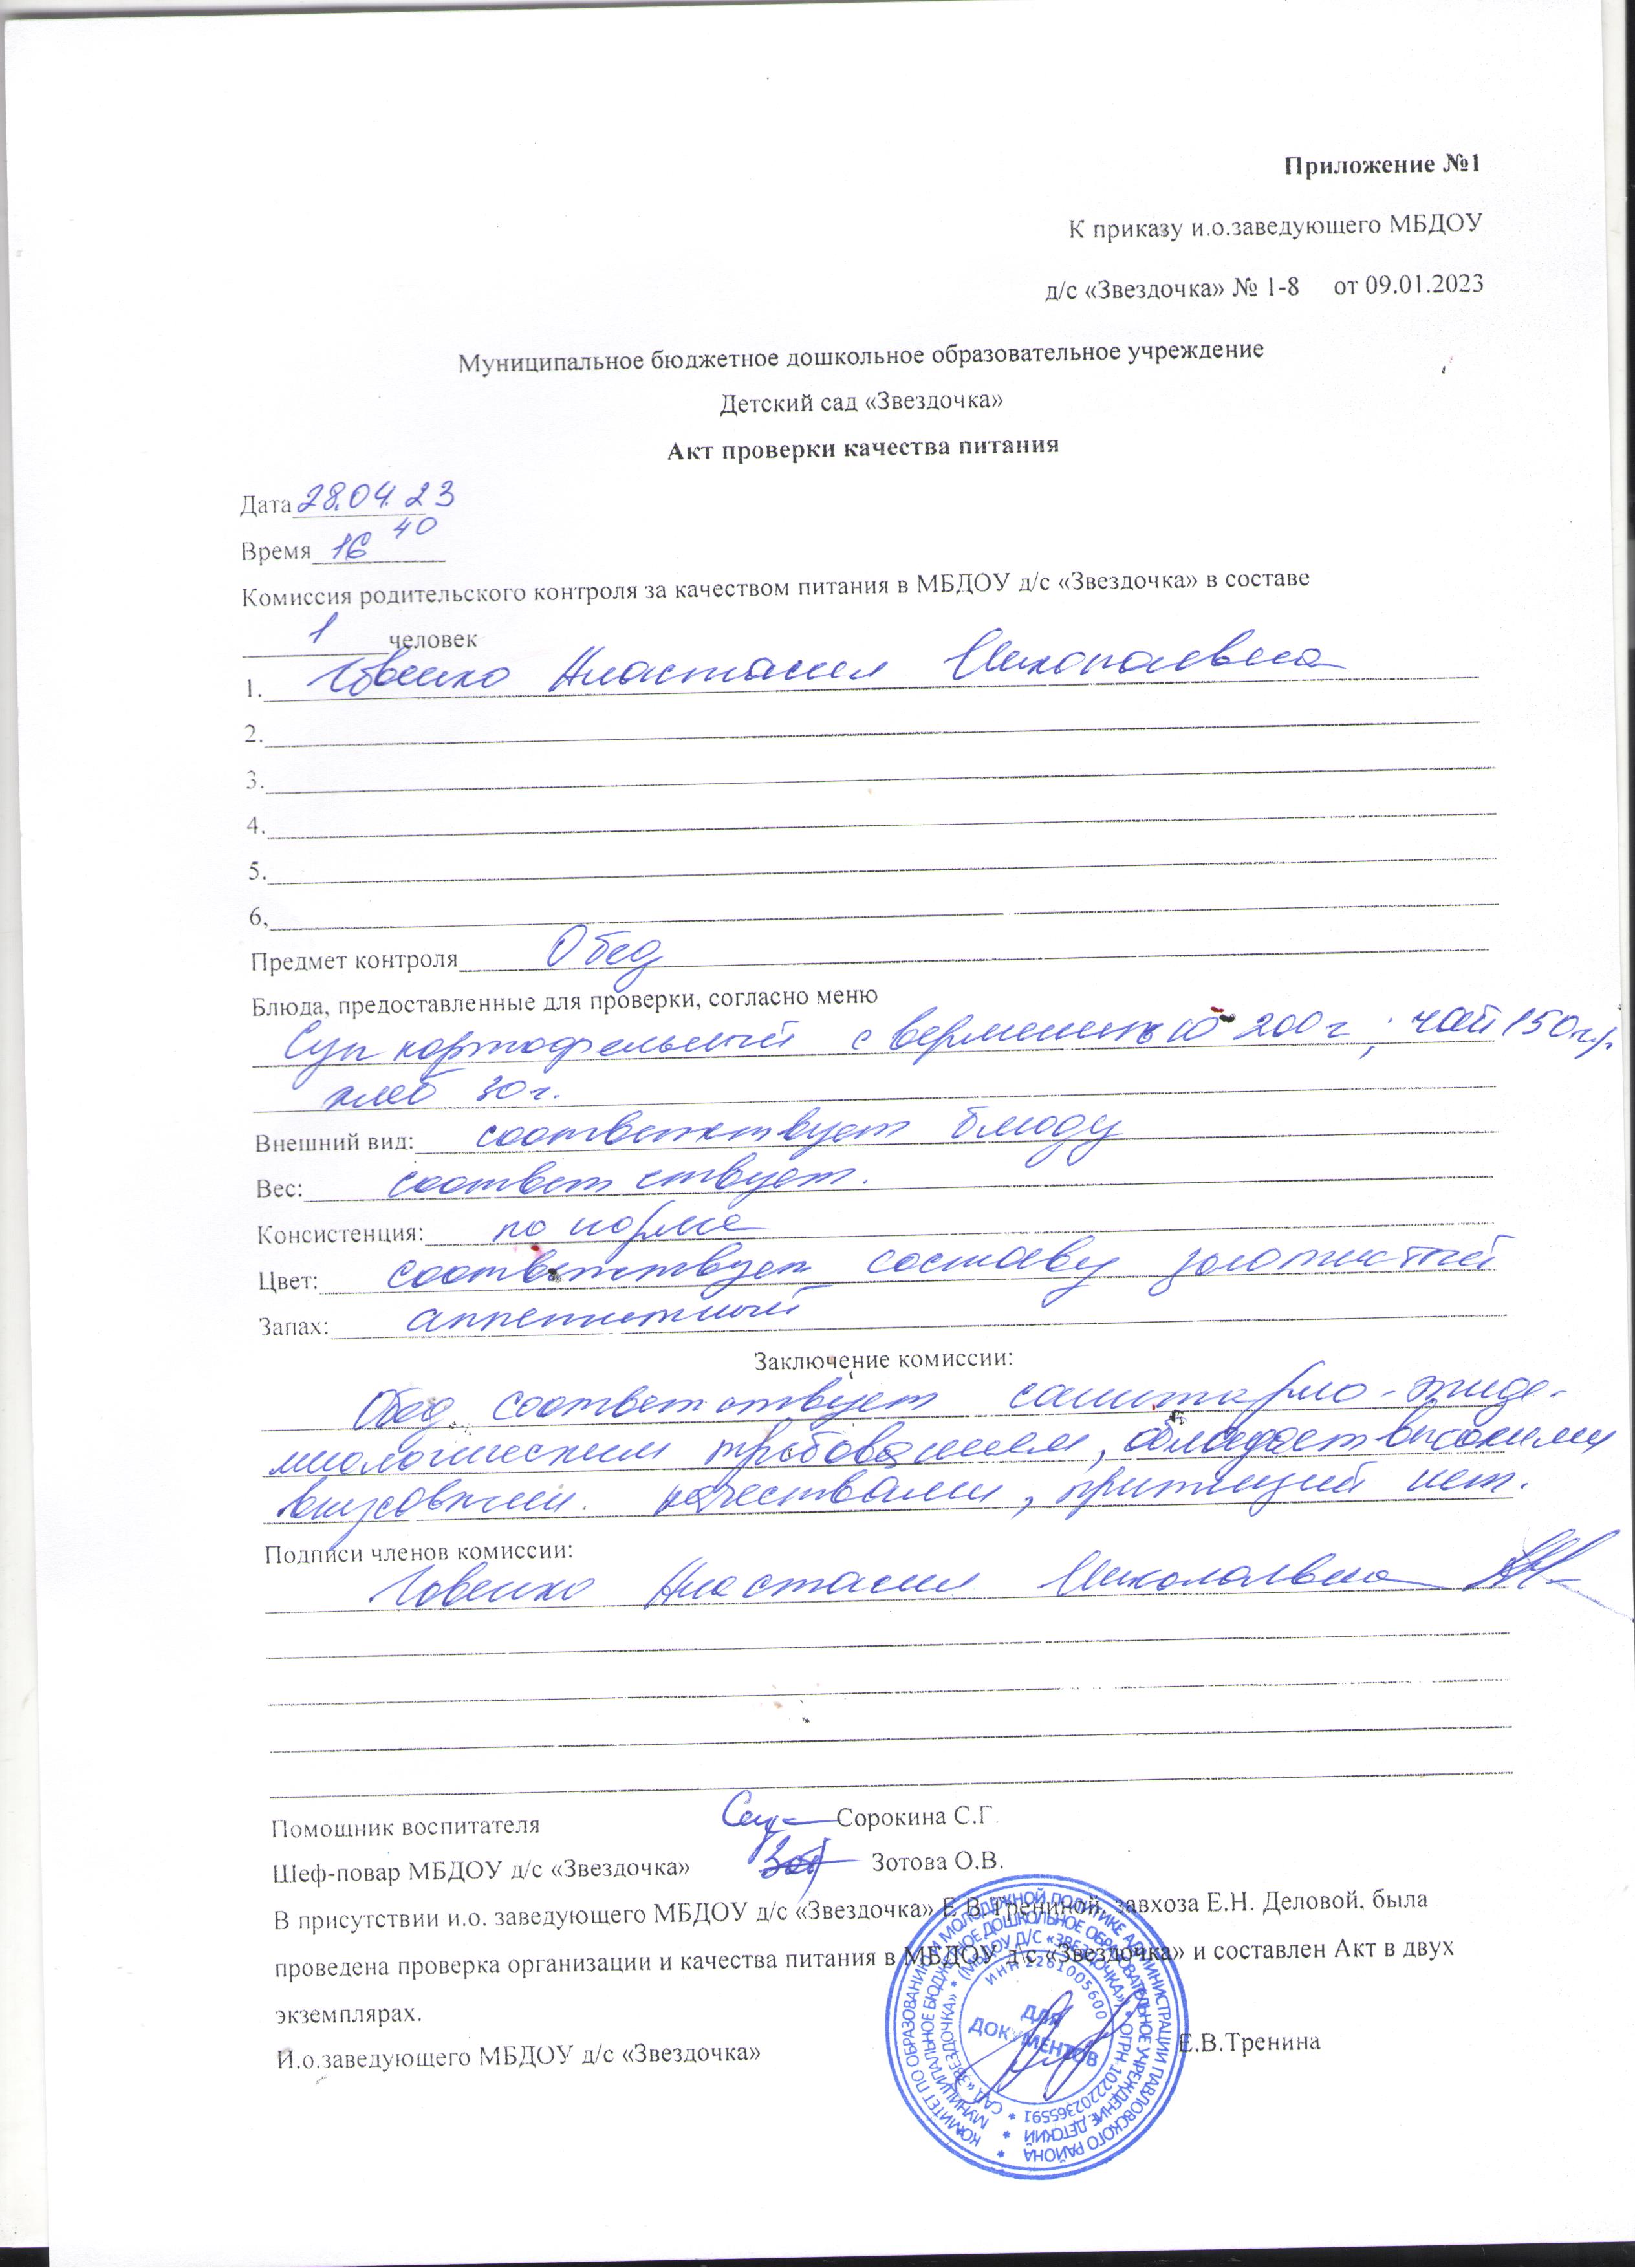 Приложение №1
К приказу и.о.заведующего МБДОУ
д/с «Звездочка» № 1-8 от 09.01.2023
Муниципальное бюджетное дошкольное образовательное учреждение
Детский сад «Звездочка»
Акт проверки качества питания
Дата 28.04.23
Время 16 40
Комиссия родительского контроля за качеством питания в МБДОУ д/с «Звездочка» в составе
1 человек
1. Анастасия Николаевна
2.
3.
4.
5.
6.
Предмет контроля Обед
Блюда, предоставленные для проверки, согласно меню
Суп картофельный с вермишелью 200 г; чай 150 гр
хлеб 30 г.
Внешний вид: соответствует блюду
Вес: соответствует.
Консистенция: по норме
Цвет: соответствует составу золотистый
Запах: аппетитный
Заключение комиссии:
Обед соответствует санитарно-эпиде-
миологическим требованиям, обладает высокими
вкусовыми качествами, притензий нет.
Подписи членов комиссии:
Анастасия Николаевна
Помощник воспитателя Сорокина С.Г.
Шеф-повар МБДОУ д/с «Звездочка» Зотова О.В.
В присутствии и.о. заведующего МБДОУ д/с «Звездочка» Е.В.Трениной, завхоза Е.Н. Деловой, была
проведена проверка организации и качества питания в МБДОУ д/с «Звездочка» и составлен Акт в двух
экземплярах.
И.о.заведующего МБДОУ д/с «Звездочка» Е.В.Тренина
КОМИТЕТ ПО ОБРАЗОВАНИЮ И МОЛОДЕЖНОЙ ПОЛИТИКЕ АДМИНИСТРАЦИИ ПАВЛОВСКОГО РАЙОНА *
МУНИЦИПАЛЬНОЕ БЮДЖЕТНОЕ ДОШКОЛЬНОЕ ОБРАЗОВАТЕЛЬНОЕ УЧРЕЖДЕНИЕ ДЕТСКИЙ *
САД «ЗВЕЗДОЧКА» * (МБДОУ Д/С «ЗВЕЗДОЧКА») * ОГРН 1022202365591 *
ИНН 2261005600
ДЛЯ
ДОКУМЕНТОВ